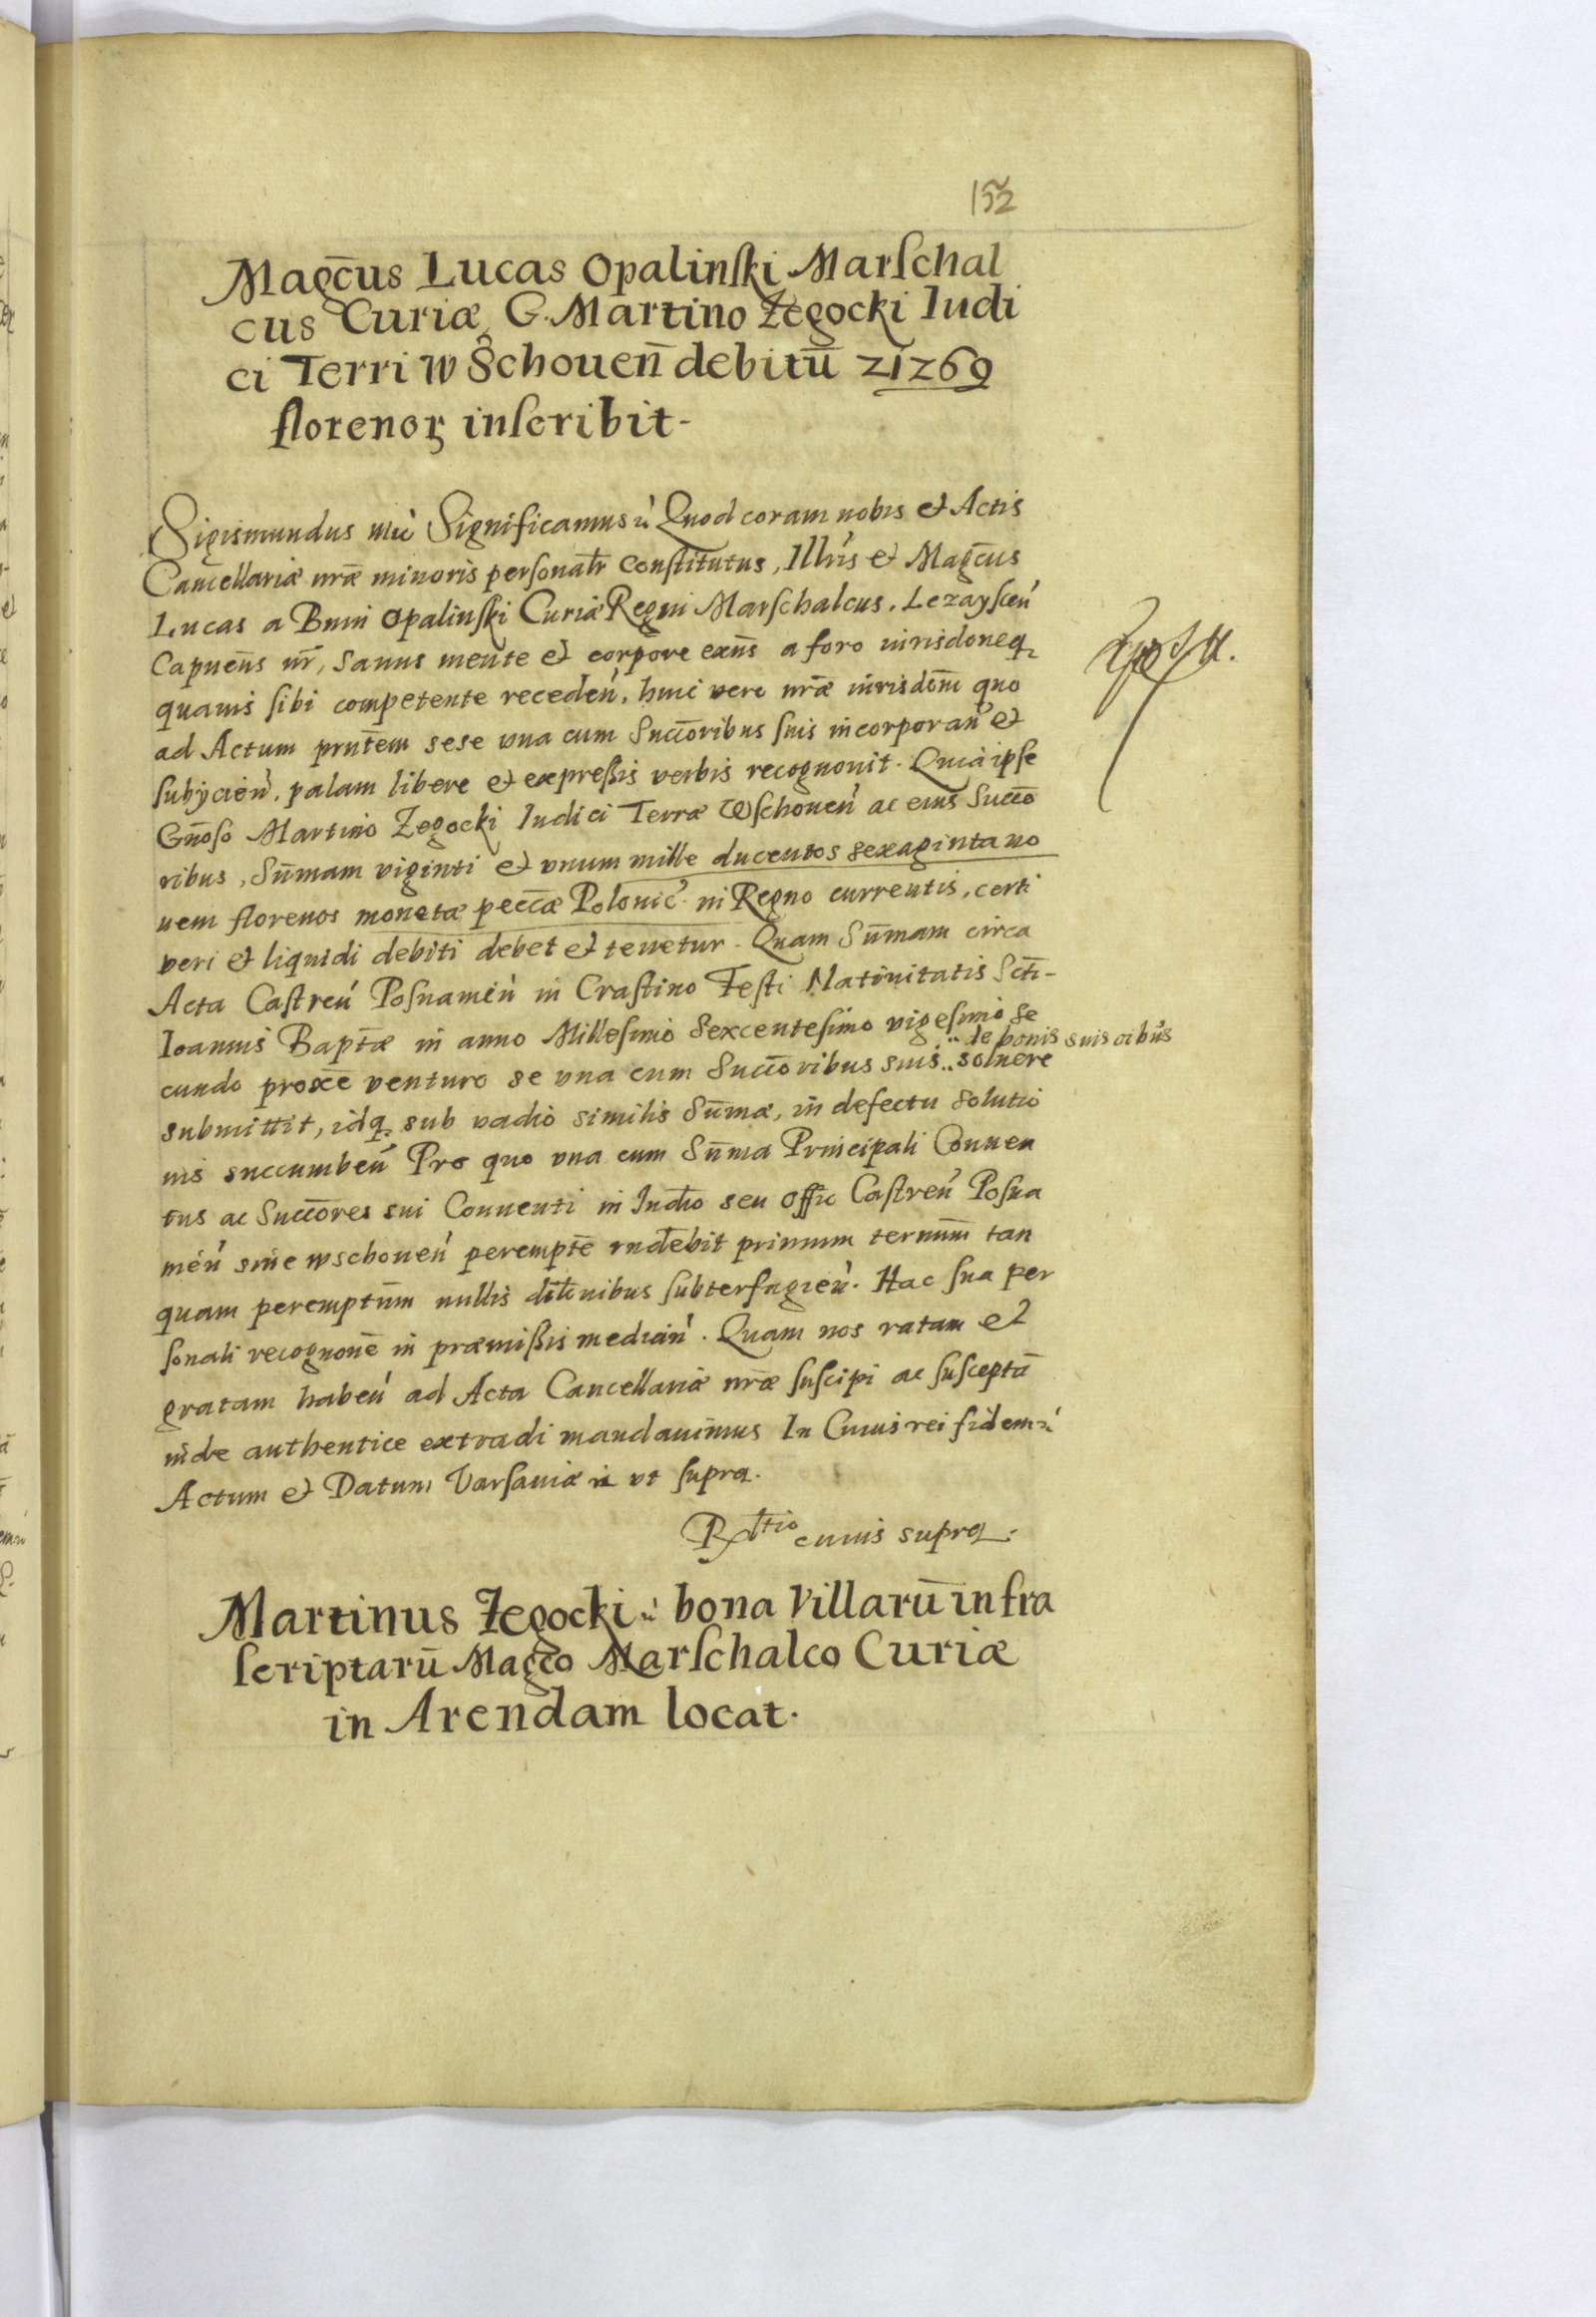 152
Magc̄us Lucas Opalinſki Marſchal
cus Curiæ, G. Martino Żegocki Iudi
ci Terri WSchouen̄ debitū 21269
florenoꝝ inſcribit-
Sigismundus Significamus Quod coram nobis et Actis
Cancellariæ nr̄æ minoris personalr̄ constitutus, Illr̄is et Magc̄us
Lucas a Bnin Opalinſki Curiæ Regni Marſchalcus, Lezayſcen̄
Capnen̄s nr̄, sanus mente et corpore exn̄s a foro iurisdoneq
quauis ſibi competente receden̄, huic vero nr̄æ iurisdōni quo
ad Actum prn̄tem sese vna cum Succ̄oribus ſuis incorporan̄ et
ſubijcien̄, palam libere et expreſsis verbis recognouit. Quia ipſe
Gn̄oſo Martino Zegocki Iudici Terræ Wſchouen̄ ac eius Succō
ribus, Sūmam viginti et vnum mille ducentos sexaginta no
uem florenos monetæ pecc̄æ Polonic̄ in Regno currentis, certi
veri et liquidi debiti debet et tenetur. Quam Sūmam circa
Acta Castren̄ Poſnanien̄ in Craſtino Feſti Natiuitatis Sct̄i-
Ioannis Bapt̄æ in anno Milleſimo Sexcentesimo vigeſimo se
cundo proxē venturo se vna cum Succ̄oribus suis.. soluere
.. de bonis suis oībus
submittit, idq sub vadio similis Sūmæ, in defectu solutio
nis succumben̄ Pro quo vna cum Sūma Principali Conuen
tus ac Succ̄ores sui Conuenti in Iudīo seu Offic Caſtren̄ Poſna
nien̄ siue wschouen̄ peremptē rnd̄ebit primum termn̄m tan
quam peremptm̄ nullis dil̄onibus ſubterfugien̄. Hac ſua per
ſonali recognonē in præmiſsis median̄. Quam nos ratam et
gratam haben̄ ad Acta Cancellariæ nr̄æ ſuſcipi ac ſuſceptā
inde authentice extradi mandauimus In Cuius rei fidem
Actum et Datum Varſauiæ vt ſupra.
Rltio cuius supra.
Martinus Żegocki bona Villarū infra
ſcriptarū Magc̄o Marſchalco Curiæ
in Arendam locat.